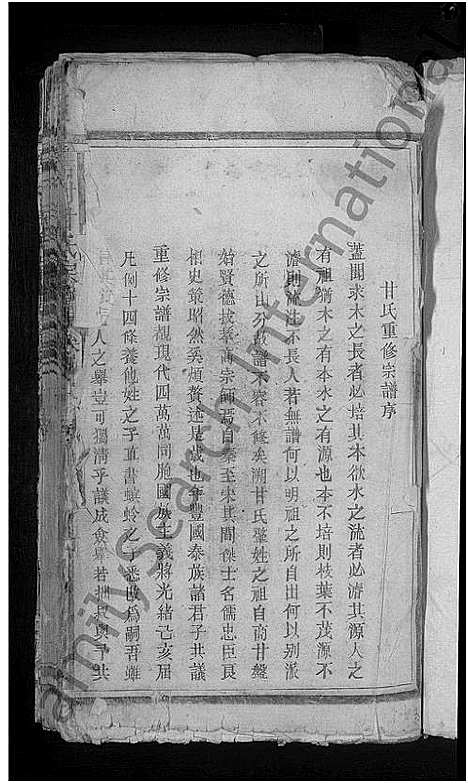 甘氏重修宗譜序
蓋聞求木之長者必培其本欲水之流者必濬其源人之
有祖猶木之有本水之有源也本不培則枝葉不茂源不
濬則流注不長人若無譜何以明祖之所自出何以別派
之所由分故譜不容不修矣溯甘氏肇姓之祖自商甘盤
始賢德拔萃高宗師焉自秦至宋其間傑士名儒忠臣良
相史策昭然奚煩贅述是歲也年豐國泰族諸君子共議
重修宗譜覩現代四萬萬同胞國族主義將光緒己亥届
凡例十四條養他姓之子直書螟蛉之子悉改為嗣吾雖
人之舉豈可獨清乎議成僉
FamilySearch International